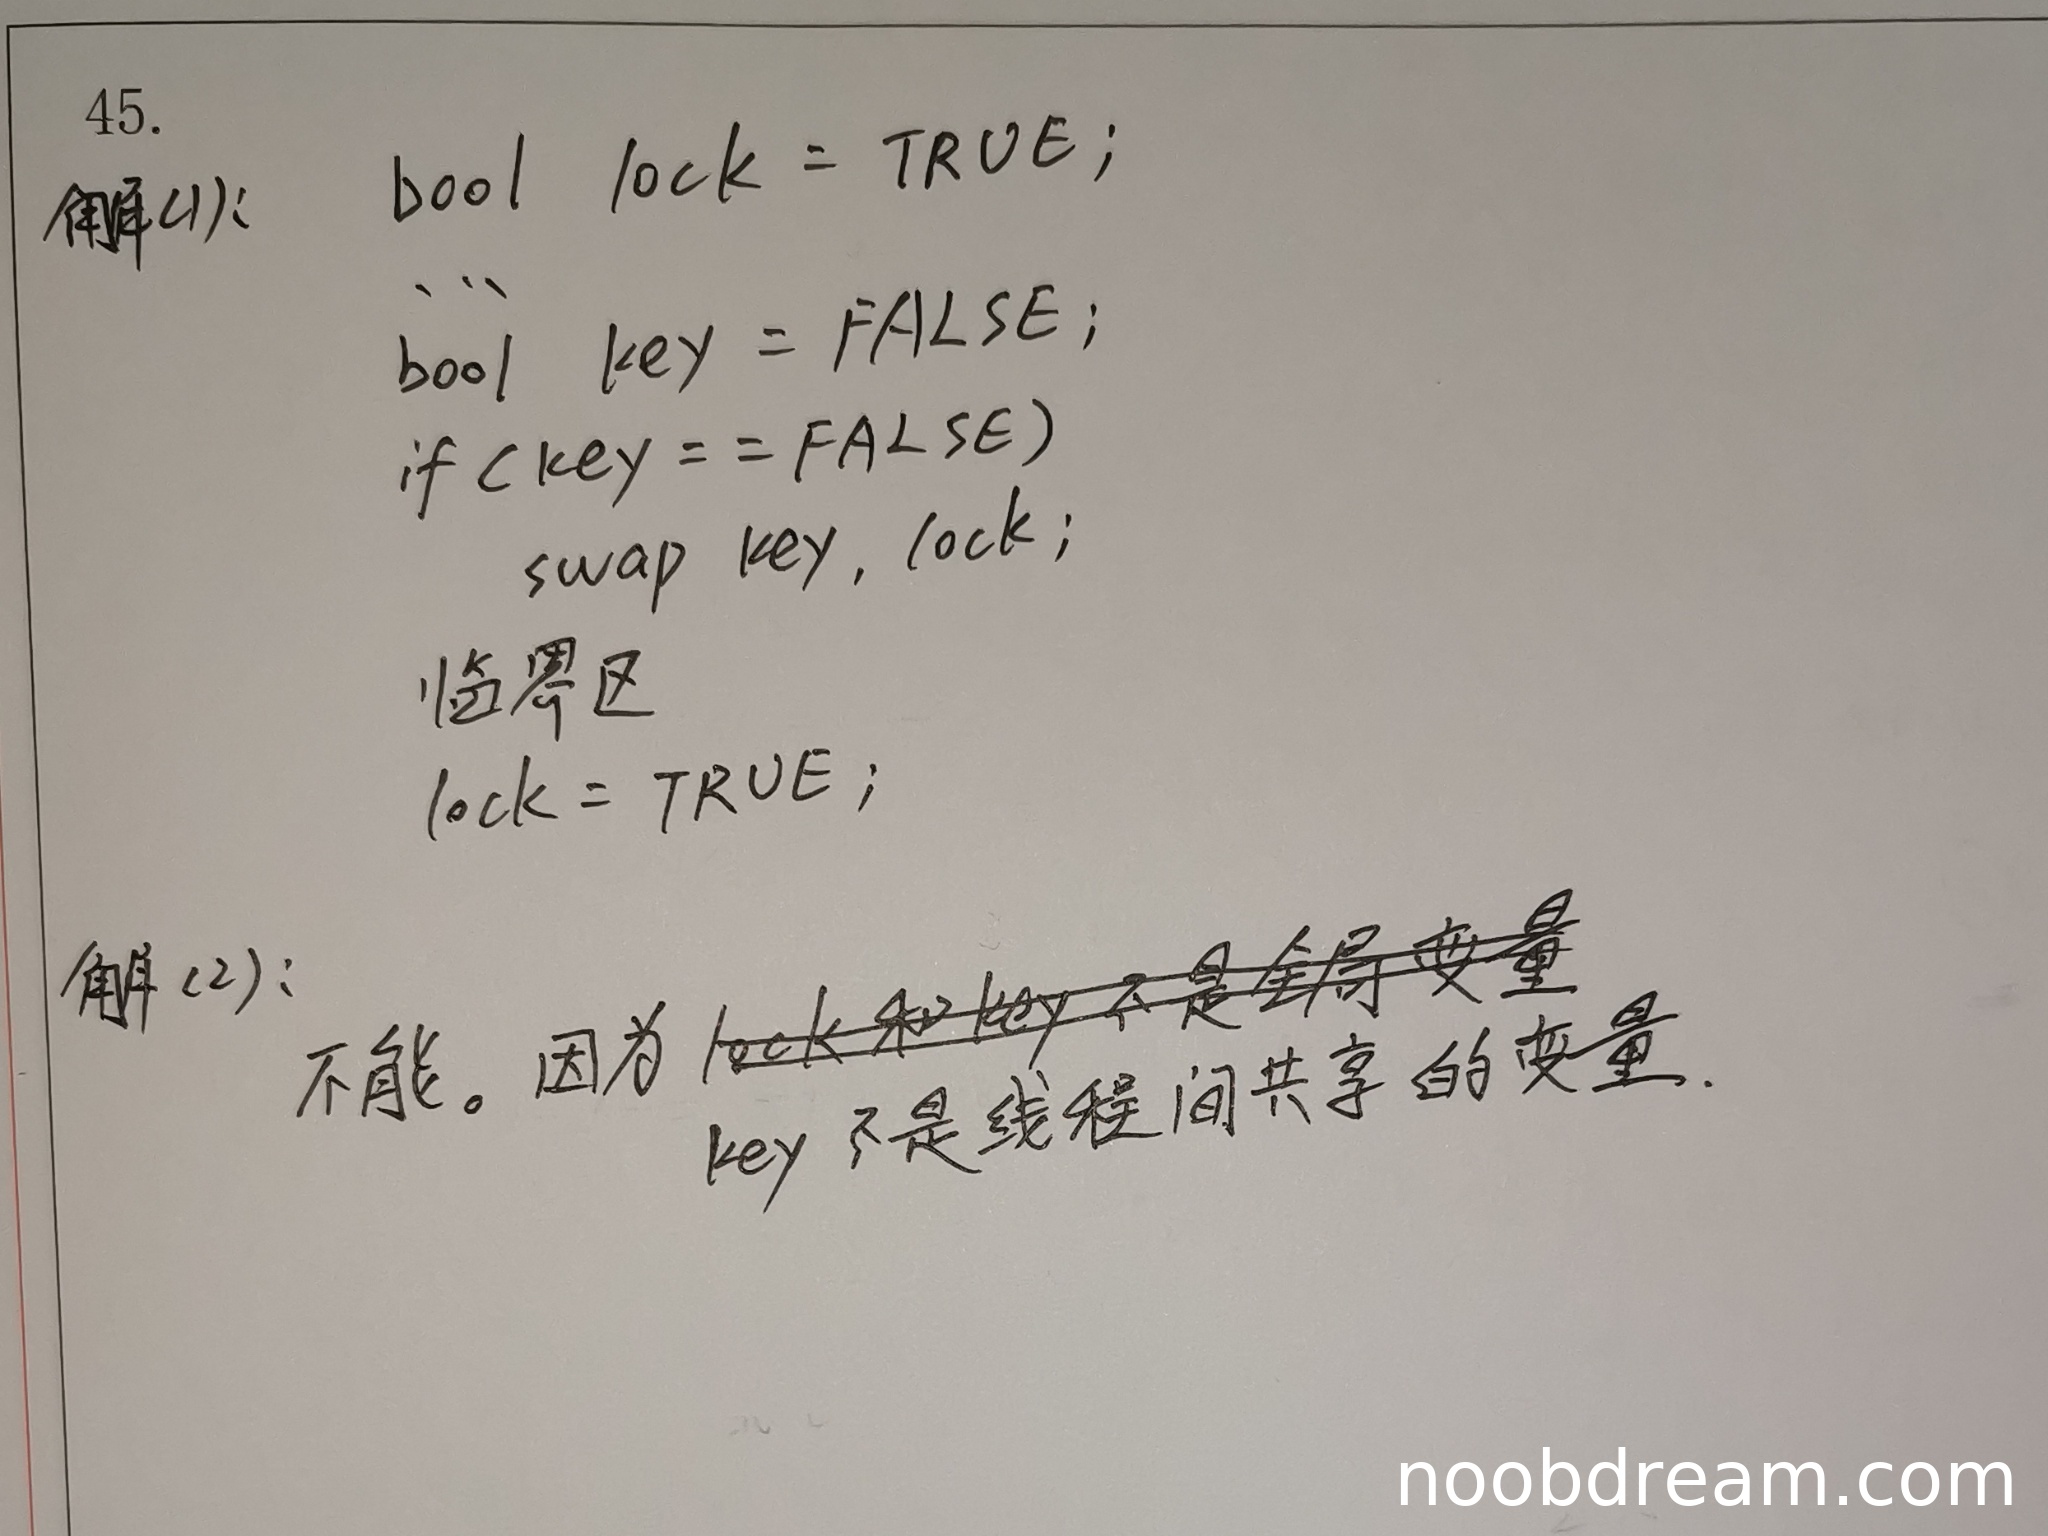 45.
解(1): bool lock = TRUE;
...
bool key = FALSE;
if (key == FALSE)
swap key, lock;
临界区
lock = TRUE;
解(2):
不能。因为 lock 和 key 不是全局变量
key 不是线程间共享的变量.
noobdream.com